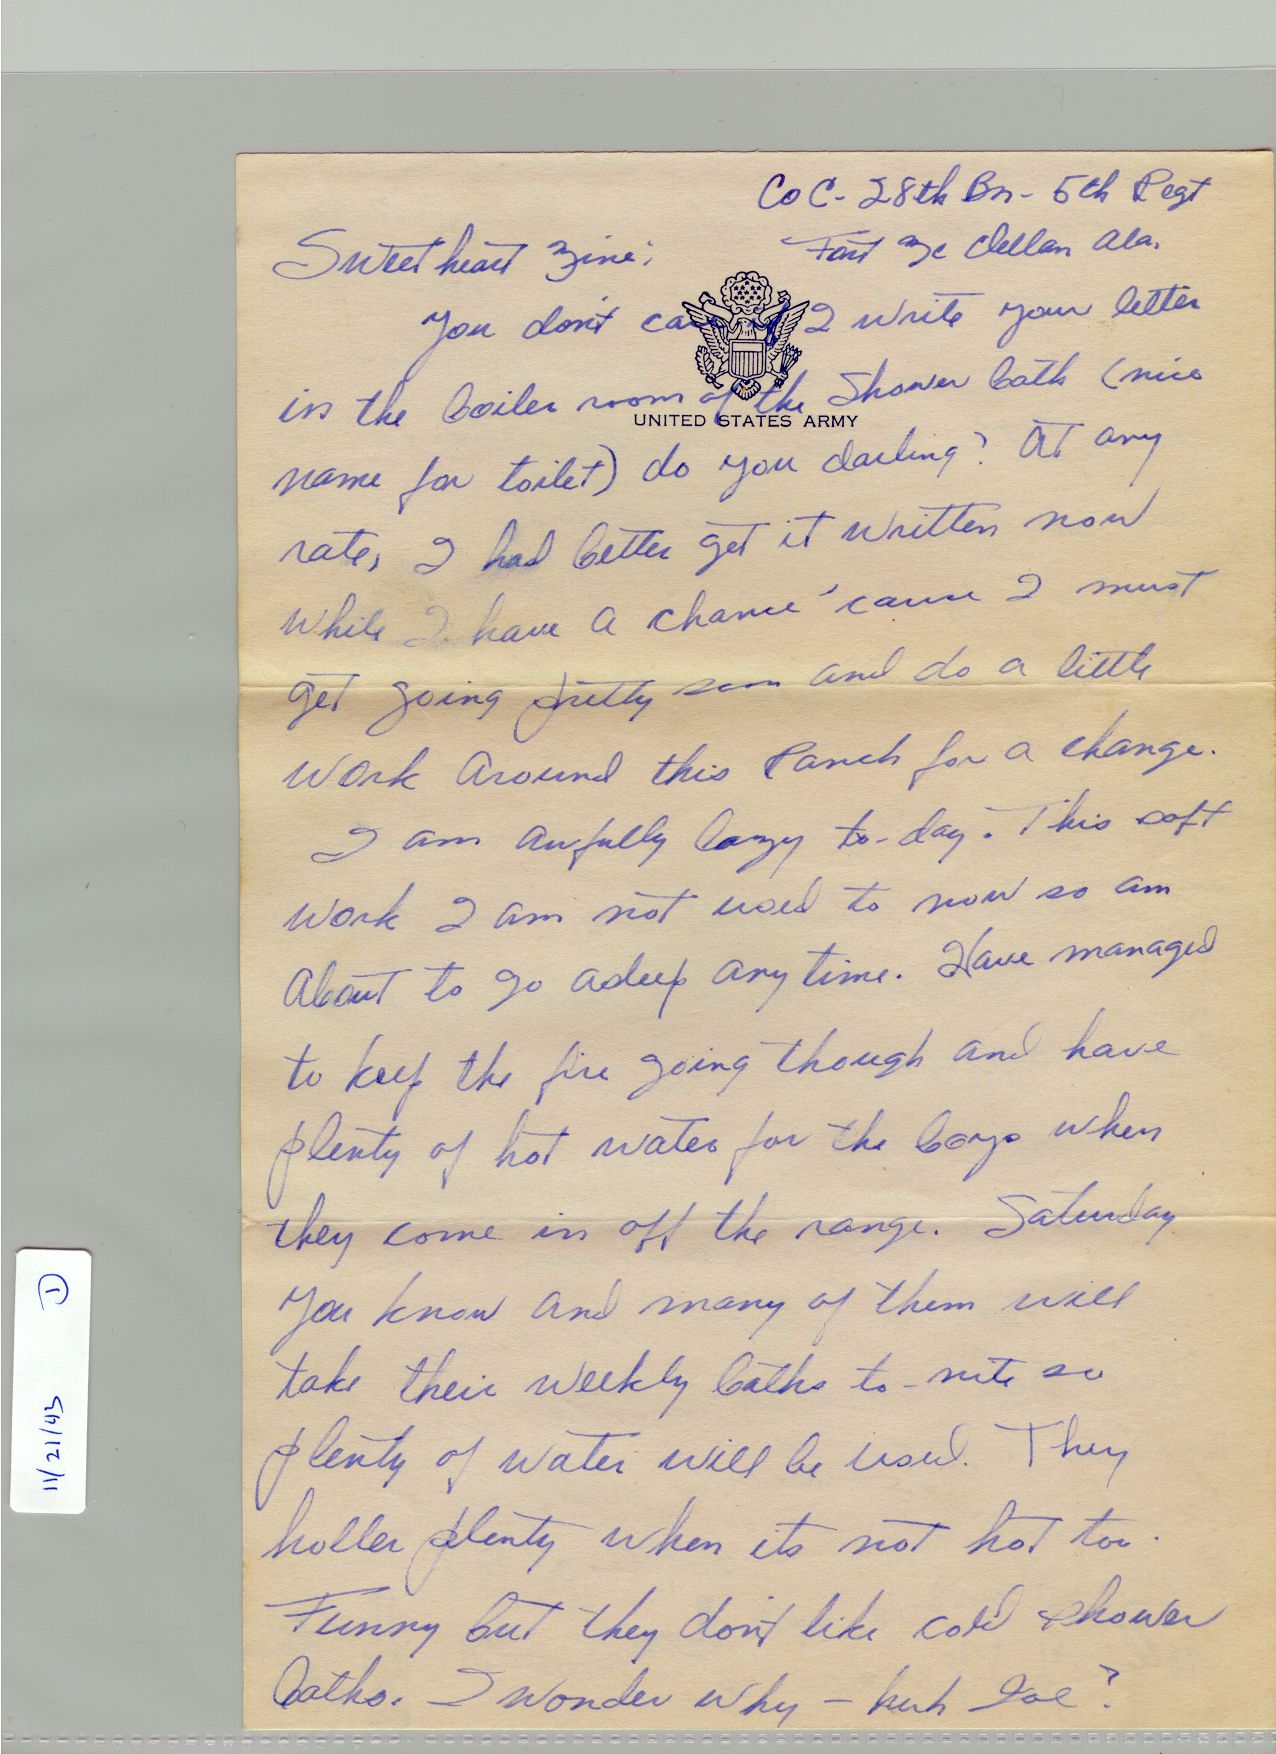 Co C - 28th Bn - 5th Regt
Fort Mc Clellan Ala.
Sweetheart Mine:
You don't care if I write your letter
in the boiler room of the Shower bath (nice
UNITED STATES ARMY
name for toilet) do you darling? At any
rate, I had better get it written now
while I have a chance 'cause I must
get going pretty soon and do a little
work around this Ranch for a change.
I am awfully lazy to-day. This soft
work I am not used to now so am
about to go asleep anytime. Have managed
to keep the fire going though and have
plenty of hot water for the boys when
they come in off the range. Saturday
you know and many of them will
take their weekly baths to-nite so
plenty of water will be used. They
holler plenty when its not hot too.
Funny but they don't like cold shower
baths. I wonder why - huh
11/21/43 1